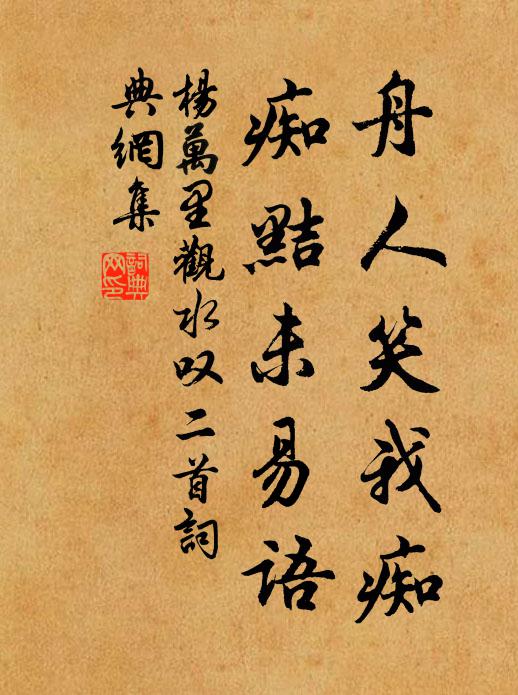 舟人笑我痴
痴黠未易語
楊萬里觀水叹二首詞
典網集
詞典
网印